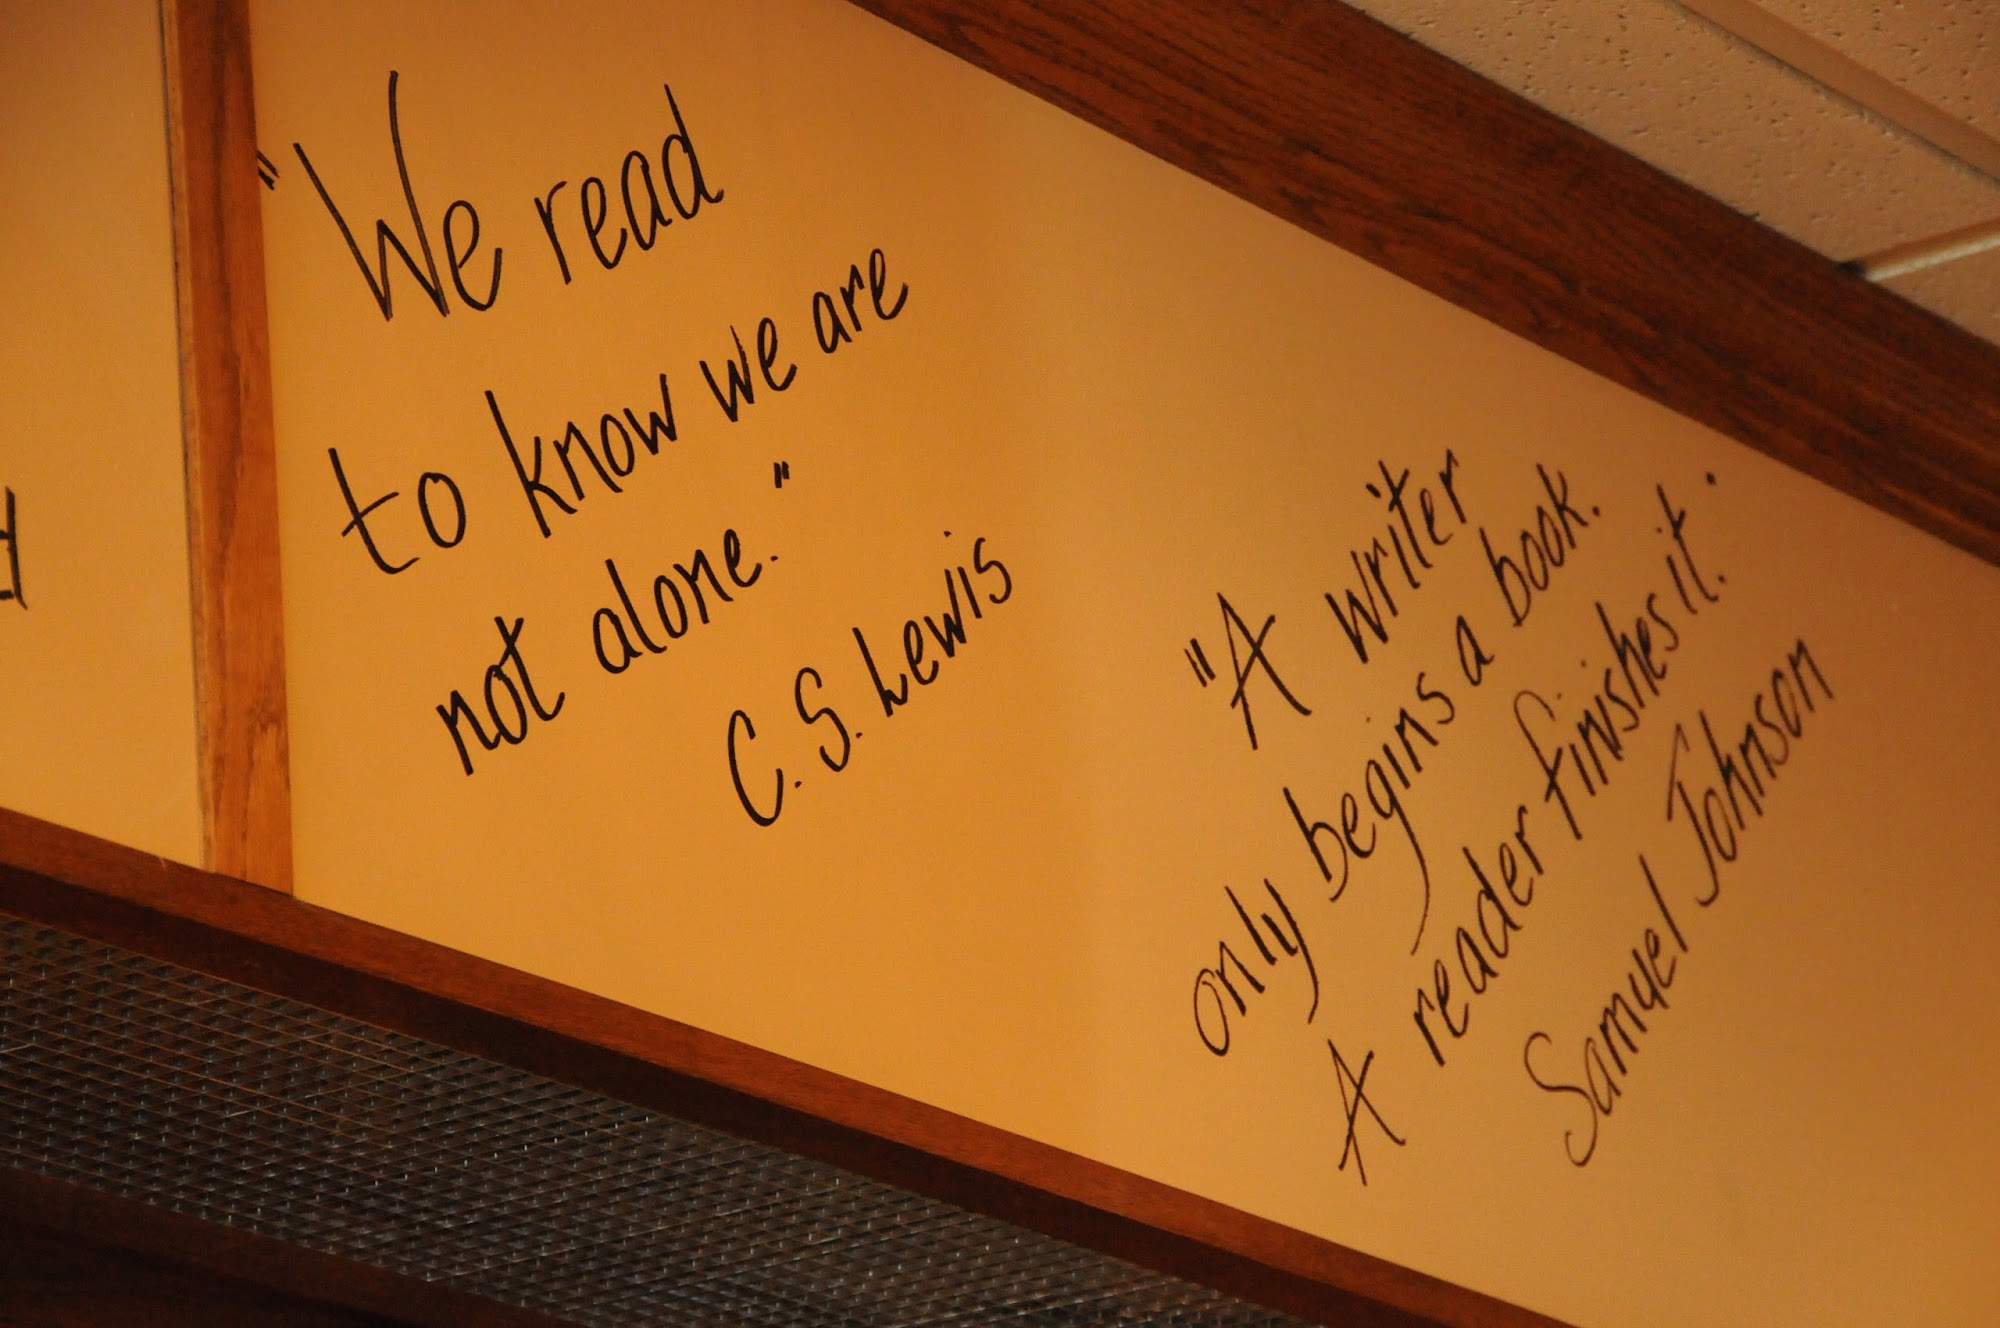 "We read
to know we are
not alone."
C. S. Lewis
"A writer
only begins a book.
A reader finishes it."
Samuel Johnson